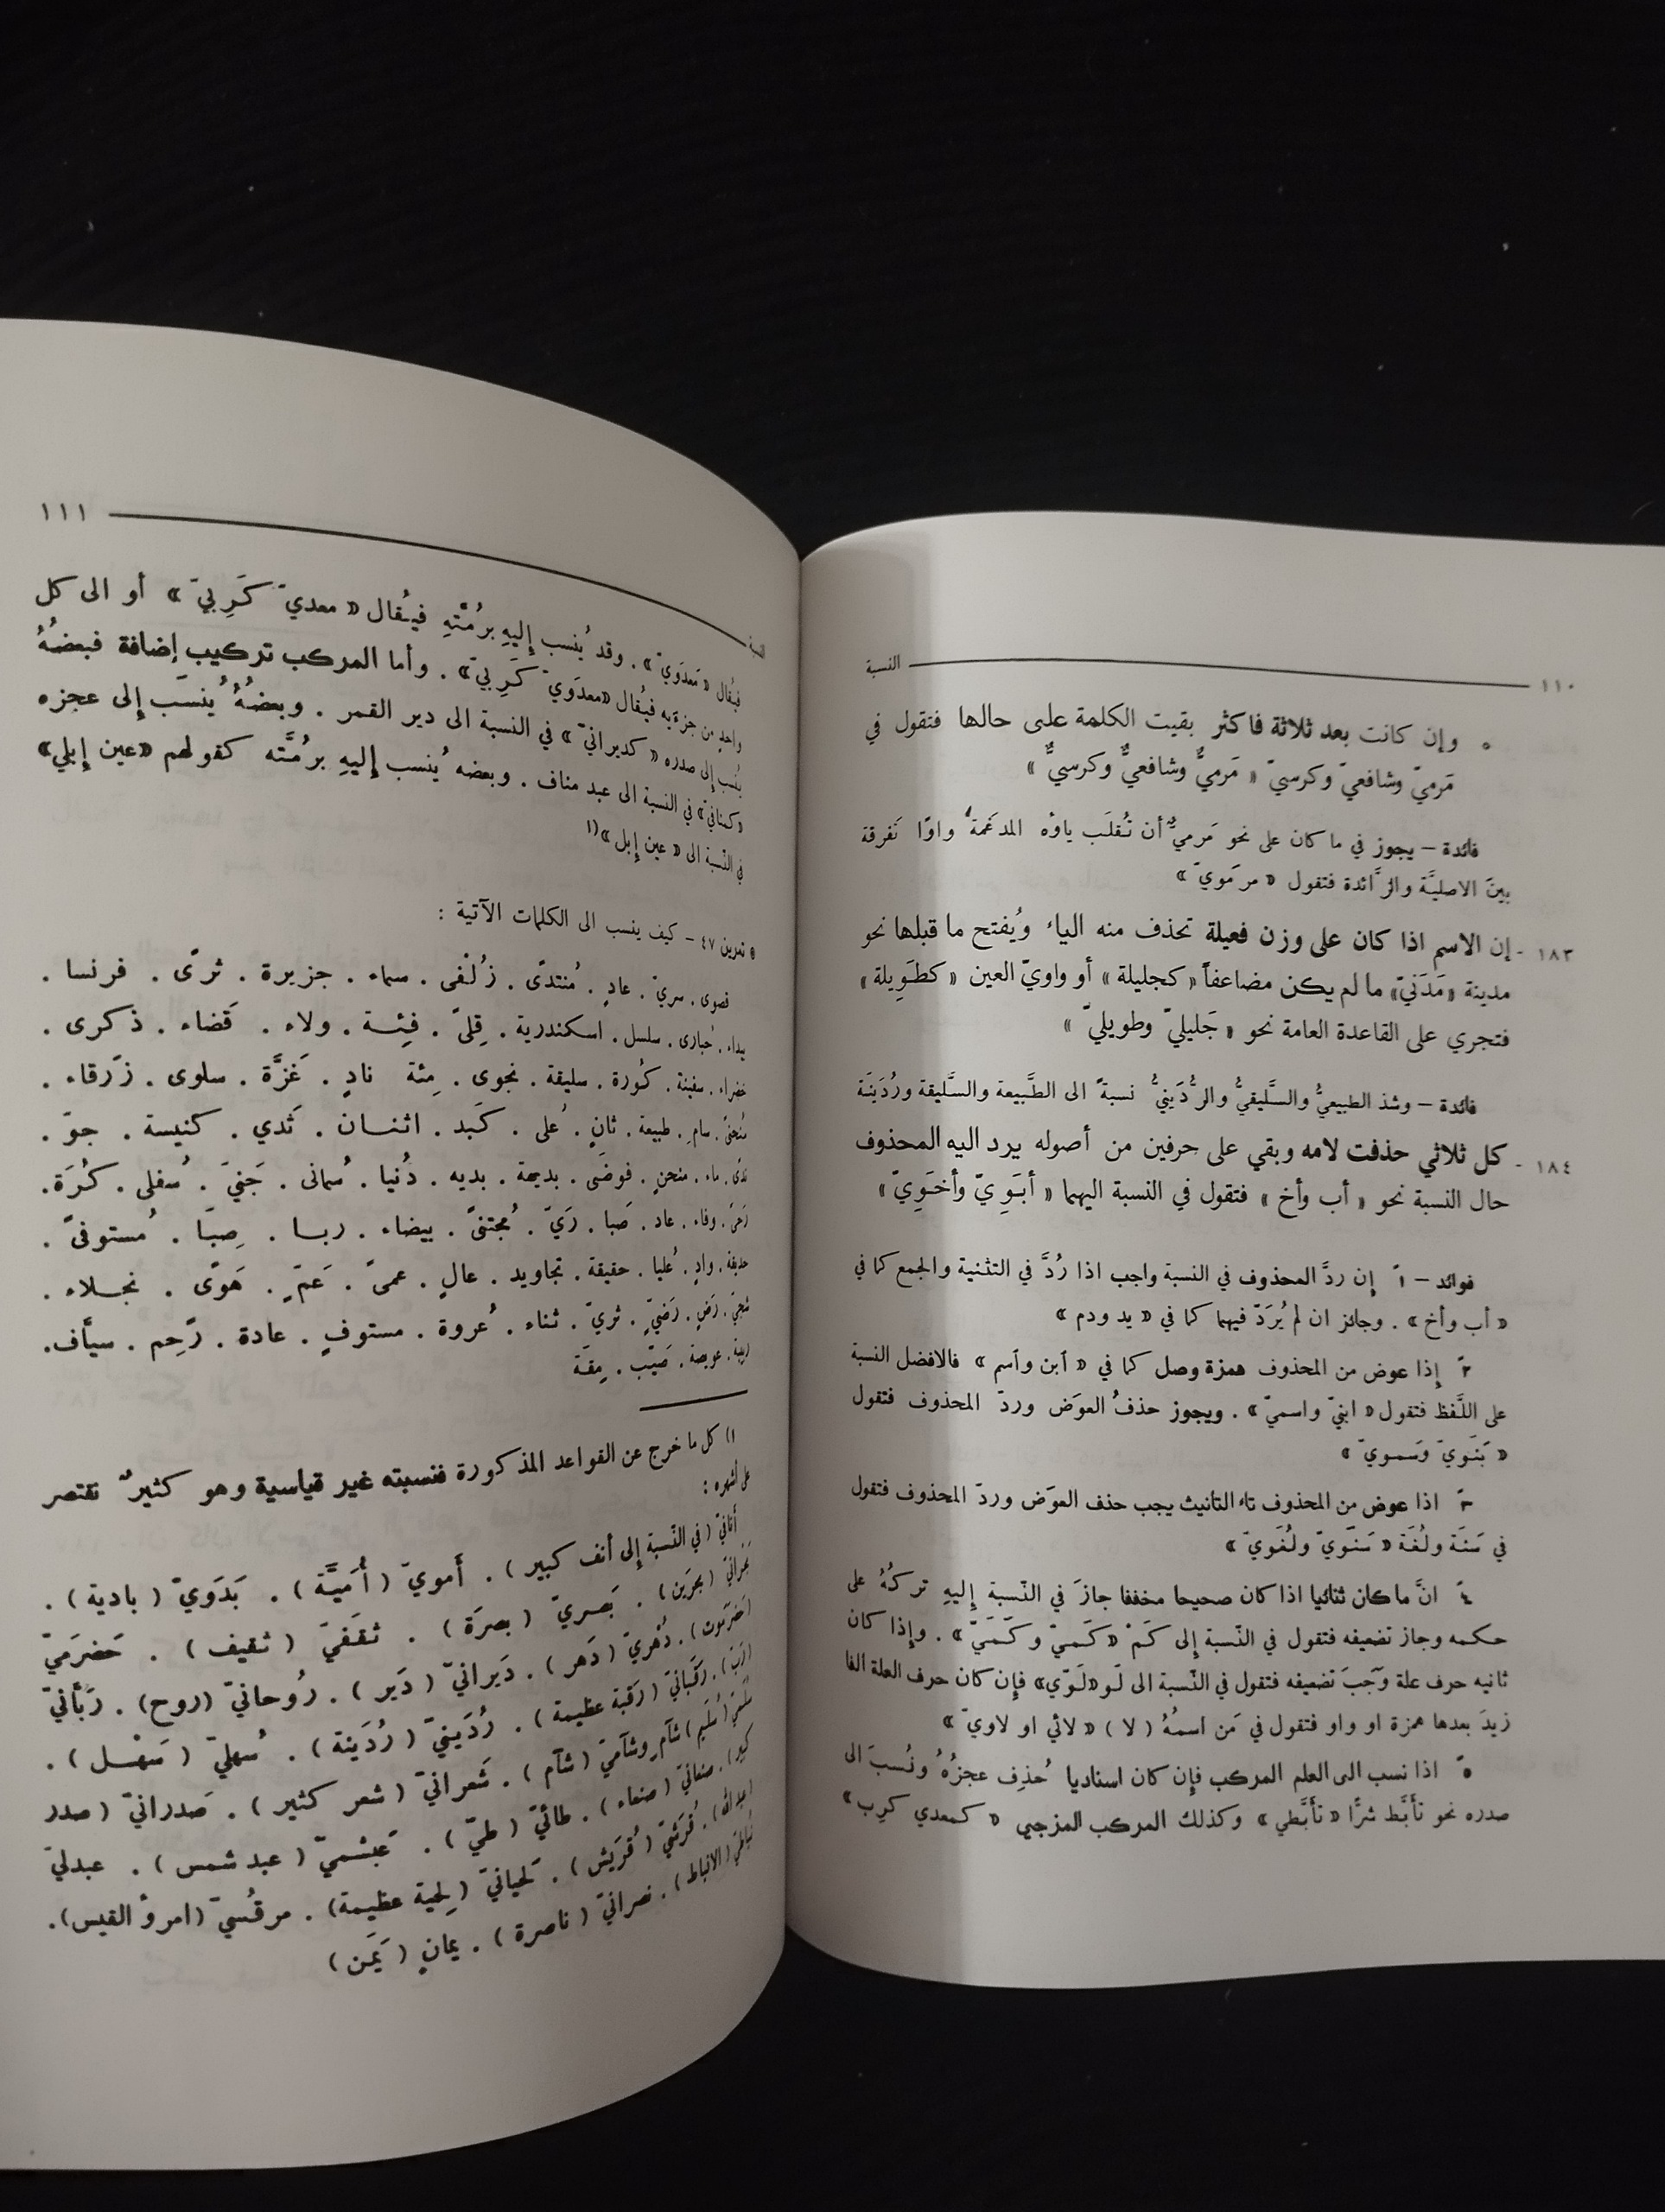 النسبة ١١٠
• وإن كانت بعد ثلاثة فاكثر بقيت الكلمة على حالها فتقول في
مَرميّ وشافعيّ وكرسيّ « مَرميٌّ وشافعيٌّ وكرسيٌّ »
فائدة – يجوز في ما كان على نحو مَرميٍّ أن تُقلَب ياؤه المدغَمة واوًا تَفرقة
بينَ الاصليَّة والزَّائدة فتقول « مرمَويّ »
١٨٣ - إن الاسم اذا كان على وزن فعيلة تحذف منه الياء ويُفتح ما قبلها نحو
مدينة «مَدَنيّ» ما لم يكن مضاعفاً «كجليلة» أو واويّ العين «كطَوِيلة»
فتجري على القاعدة العامة نحو « جَليليّ وطويليّ »
فائدة – وشذ الطبيعيُّ والسَّليقيُّ والرُّدَينيُّ نسبةً الى الطَّبيعة والسَّليقة ورُدَينَة
١٨٤ - كل ثلاثي حذفت لامه وبقي على حرفين من أصوله يرد اليه المحذوف
حال النسبة نحو « أب وأخ » فتقول في النسبة اليهما « أبَوِيّ وأخَوِيّ »
فوائد – ١ً إن ردَّ المحذوف في النسبة واجب اذا رُدَّ في التثنية والجمع كما في
« أب وأخ » . وجائز ان لم يُرَدّ فيهما كما في « يد ودم »
٢ً إِذا عوض من المحذوف همزة وصل كما في « ٱبن وٱسم » فالافضل النسبة
على اللَّفظ فتقول « ابنيّ واسميّ » . ويجوز حذفُ العوَض وردّ المحذوف فتقول
« بَنَويّ وَسمويّ »
٣ً اذا عوض من المحذوف تاء التانيث يجب حذف العوَض وردّ المحذوف فتقول
في سَنَة ولُغَة « سَنَويّ ولُغَويّ »
٤ً انَّ ما كان ثنائيا اذا كان صحيحا مخففا جازَ في النّسبة إِليهِ تركُهُ على
حكمه وجاز تضعيفه فتقول في النّسبة إلى كَمْ « كَميّ وكَمّيّ » . وإِذا كان
ثانيه حرف علة وَجَبَ تضعيفه فتقول في النّسبة الى لَو «لَوّي» فإِن كان حرف العلة الفا
زيدَ بعدها همزة او واو فتقول في مَن اسمُهُ ( لا ) « لائي او لاويّ »
٥ً اذا نسب الى العلم المركب فإِن كان اسناديا حُذِف عجزُهُ ونُسبَ الى
صدره نحو تأَبَّط شرًّا « تأَبَّطي » وكذلك المركب المزجي « كمعدي كرِب »
النسبة ١١١
فيُقال « مَعدَويّ » . وقد يُنسب إِليهِ برُمَّتهِ فيُقال « معديّ كَرِبيّ » أو الى كل
واحدٍ من جزءَيه فيُقال «معدَويّ كَرِبيّ» . وأما المركب تركيب إضافة فبعضُهُ
يُنسب إلى صدره « كديرانيّ » في النسبة الى دير القمر . وبعضُهُ يُنسَب إِلى عجزه
« كمنافيّ» في النسبة الى عبد مناف . وبعضه يُنسب إِليهِ برُمَّته كقولهم «عين إبلي»
في النّسبة الى « عين إبل »(١
• تمرين ٤٧ – كيف ينسب الى الكلمات الآتية :
قصوى . سريّ . عادٍ . مُنتدًى . زُلْفى . سماء . جزيرة . ثرًى . فرنسا .
بيداء . حُبارى . سلسل . اسكندرية . قِليّ . فِئة . ولاء . قَضاء . ذكرى .
خضراء . سفينة . كُورة . سليقة . نجوى . مِئة نادٍ . غَزَّة . سلوى . زَرقاء .
منحنًى . سامٍ . طبيعة . ثانٍ . عُلى . كَبد . اثنان . ثَدي . كنيسة . جوّ .
ندًى . ماء . منحنٍ . فوضَى . بديهة . بديه . دُنيا . سُمانى . جَنيّ . سُفلى . كُرَة.
رَحىً . وفاء . عاد . صَبا . رَيّ . مُجتنىً . بيضاء . ربا . صِبًا . مُستوفىً .
حديقة . وادٍ . عُليا . حقيقة . تجاويد . عالٍ . عمىً . عَمٍّ . هَوًى . نجلاء .
شجيّ . رَضٍ . رَضيّ . ثريّ . ثناء . عُروة . مستوفٍ . عادة . رَحِم . سيّاف.
. عويصة . صَيِّب . مِقَة
١) كل ما خرج عن القواعد المذكورة فنسبته غير قياسية وهو كثيرٌ نقتصر
على أشهره :
أنافيّ ( في النّسبة إلى أنف كبير ) . أَمويّ ( أُمَيَّة ) . بَدَويّ ( بادية ) .
بَحرانيّ ( بحرَين ) . بَصريّ ( بصرَة ) . ثقَفيّ ( ثقيف ) . حَضرَميّ
(حَضرموت) . دُهريّ ( دَهر ) . دَيرانيّ ( دَير ) . رُوحانيّ (روح) . رَبّانيّ
(رَبّ) . رَقَبانيّ ( رَقبة عظيمة ) . رُدَينيّ ( رُدَينة ) . سُهليّ ( سَهْل ) .
سُلَميّ ( سُلَيم ) شآمٍ وشآميّ ( شآم ) . شَعرانيّ ( شعر كثير ) . صَدرانيّ ( صدر
كبير) . صنعانيّ ( صنعاء ) . طائيّ ( طيّ ) . عَبشميّ ( عبد شمس ) . عبدليّ
(عبد الله ) . قُرَشيّ ( قُرَيش ) . لَحيانيّ ( لِحية عظيمة) . مرقُسيّ (امروُ القيس).
نَباطيّ ( الانباط ) . نصرانيّ ( ناصرة ) . يمانٍ ( يَمَن )